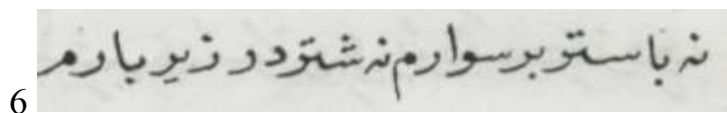 نه باستر بر سوارم نه شتر در زیر بارم
6